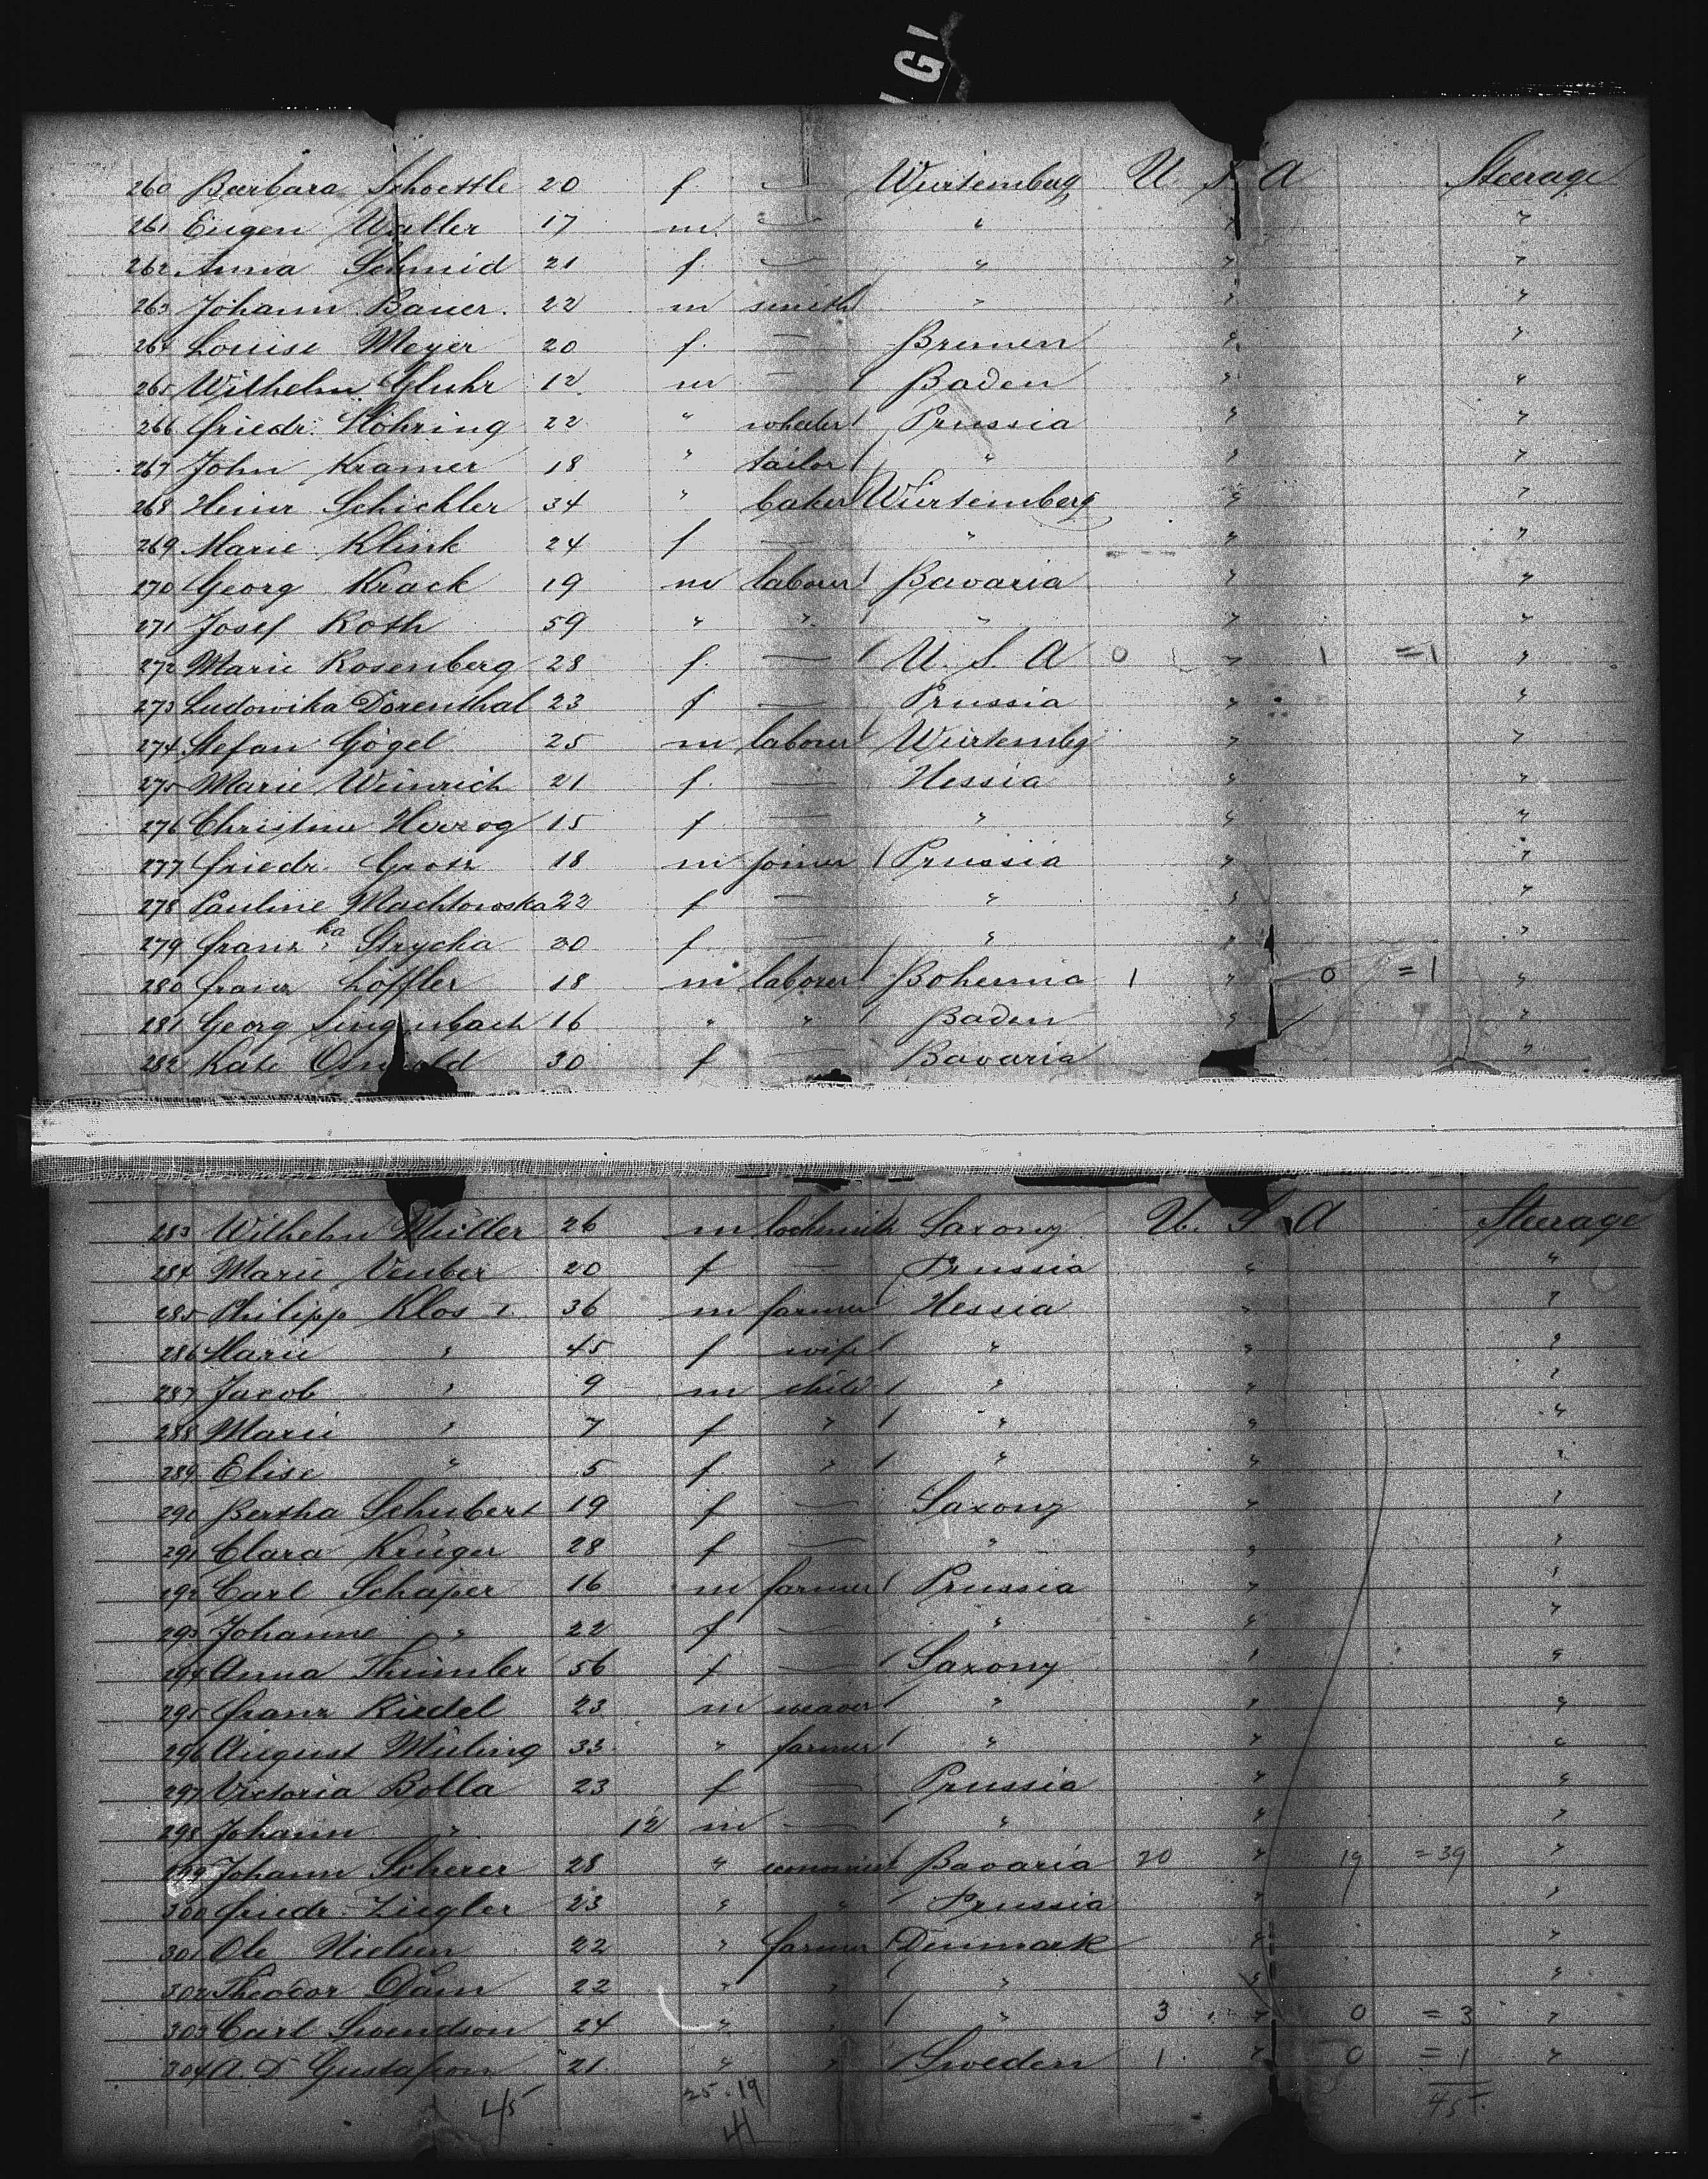 260 Barbara Schoettle 20 f. — Würtemberg U. S. A Steerage
261 Eugen Waller 17 m. — " " "
262 Anna Schmid 21 f. — " " "
263 Johann Bauer. 22 m smith " " "
264 Louise Meyer 20 f. — Bremen " "
265 Wilhelm Gluhr 12 m — Baden " "
266 Friedr. Stöhring 22 " wheeler Prussia " "
267 John Kramer 18 " tailor " " "
268 Heinr Schickler 34 " baker Würtemberg " "
269 Marie Klink 24 f — " " "
270 Georg Krack 19 m laborer Bavaria " "
271 Josef Roth 59 " " " " "
272 Marie Rosenberg 28 f. — U. S. A 0 " 1 =1 "
273 Ludowika Dörenthal 23 f — Prussia " "
274 Stefan Gögel 25 m laborer Würtembg " "
275 Marie Weinrich 21 f. — Hessia " "
276 Christine Herzog 15 f — " " "
277 Friedr. Grotz 18 m joiner Prussia " "
278 Pauline Machtowska 22 f — " " "
279 Franz ka Strycha 20 f — " " "
280 Franz Löffler 18 m laborer Bohemia 1 " 0 =1 "
281 Georg " " Baden " "
282 Kate 30 f — Bavaria "
283 Wilhelm Müller 26 m locksmith Saxony U. S. A Steerage
284 Marie Venber 20 f — Prussia " "
285 Philipp Klos 36 m farmer Hessia " "
286 Marie " 45 f wife " " "
287 Jacob " 9 m child " " "
288 Marie " 7 f " " " "
289 Elise " 5 f " " " "
290 Bertha Schubert 19 f — Saxony " "
291 Clara Krüger 28 f — " " "
292 Carl Schaper 16 m farmer Prussia " "
293 Johanne " 22 f — " " "
294 Anna Thümler 56 f — Saxony " "
295 Franz Riedel 23 m weaver " " "
296 August Müling 33 " farmer " " "
297 Victoria Bolla 23 f — Prussia " "
298 Johann " 12 m — " " "
299 Johann Scherer 28 " Bavaria 20 " 19 =39 "
300 Friedr. Ziegler 23 " " Prussia " "
301 Ole Nielsen 22 " farmer Denmark " "
302 Theodor Dam 22 " " " " "
303 Carl Swendson 24 " " " 3 " 0 =3 "
304 A. D Gustafson 21. " " Sweden 1 " 0 =1 "
45 25.19 45.
44